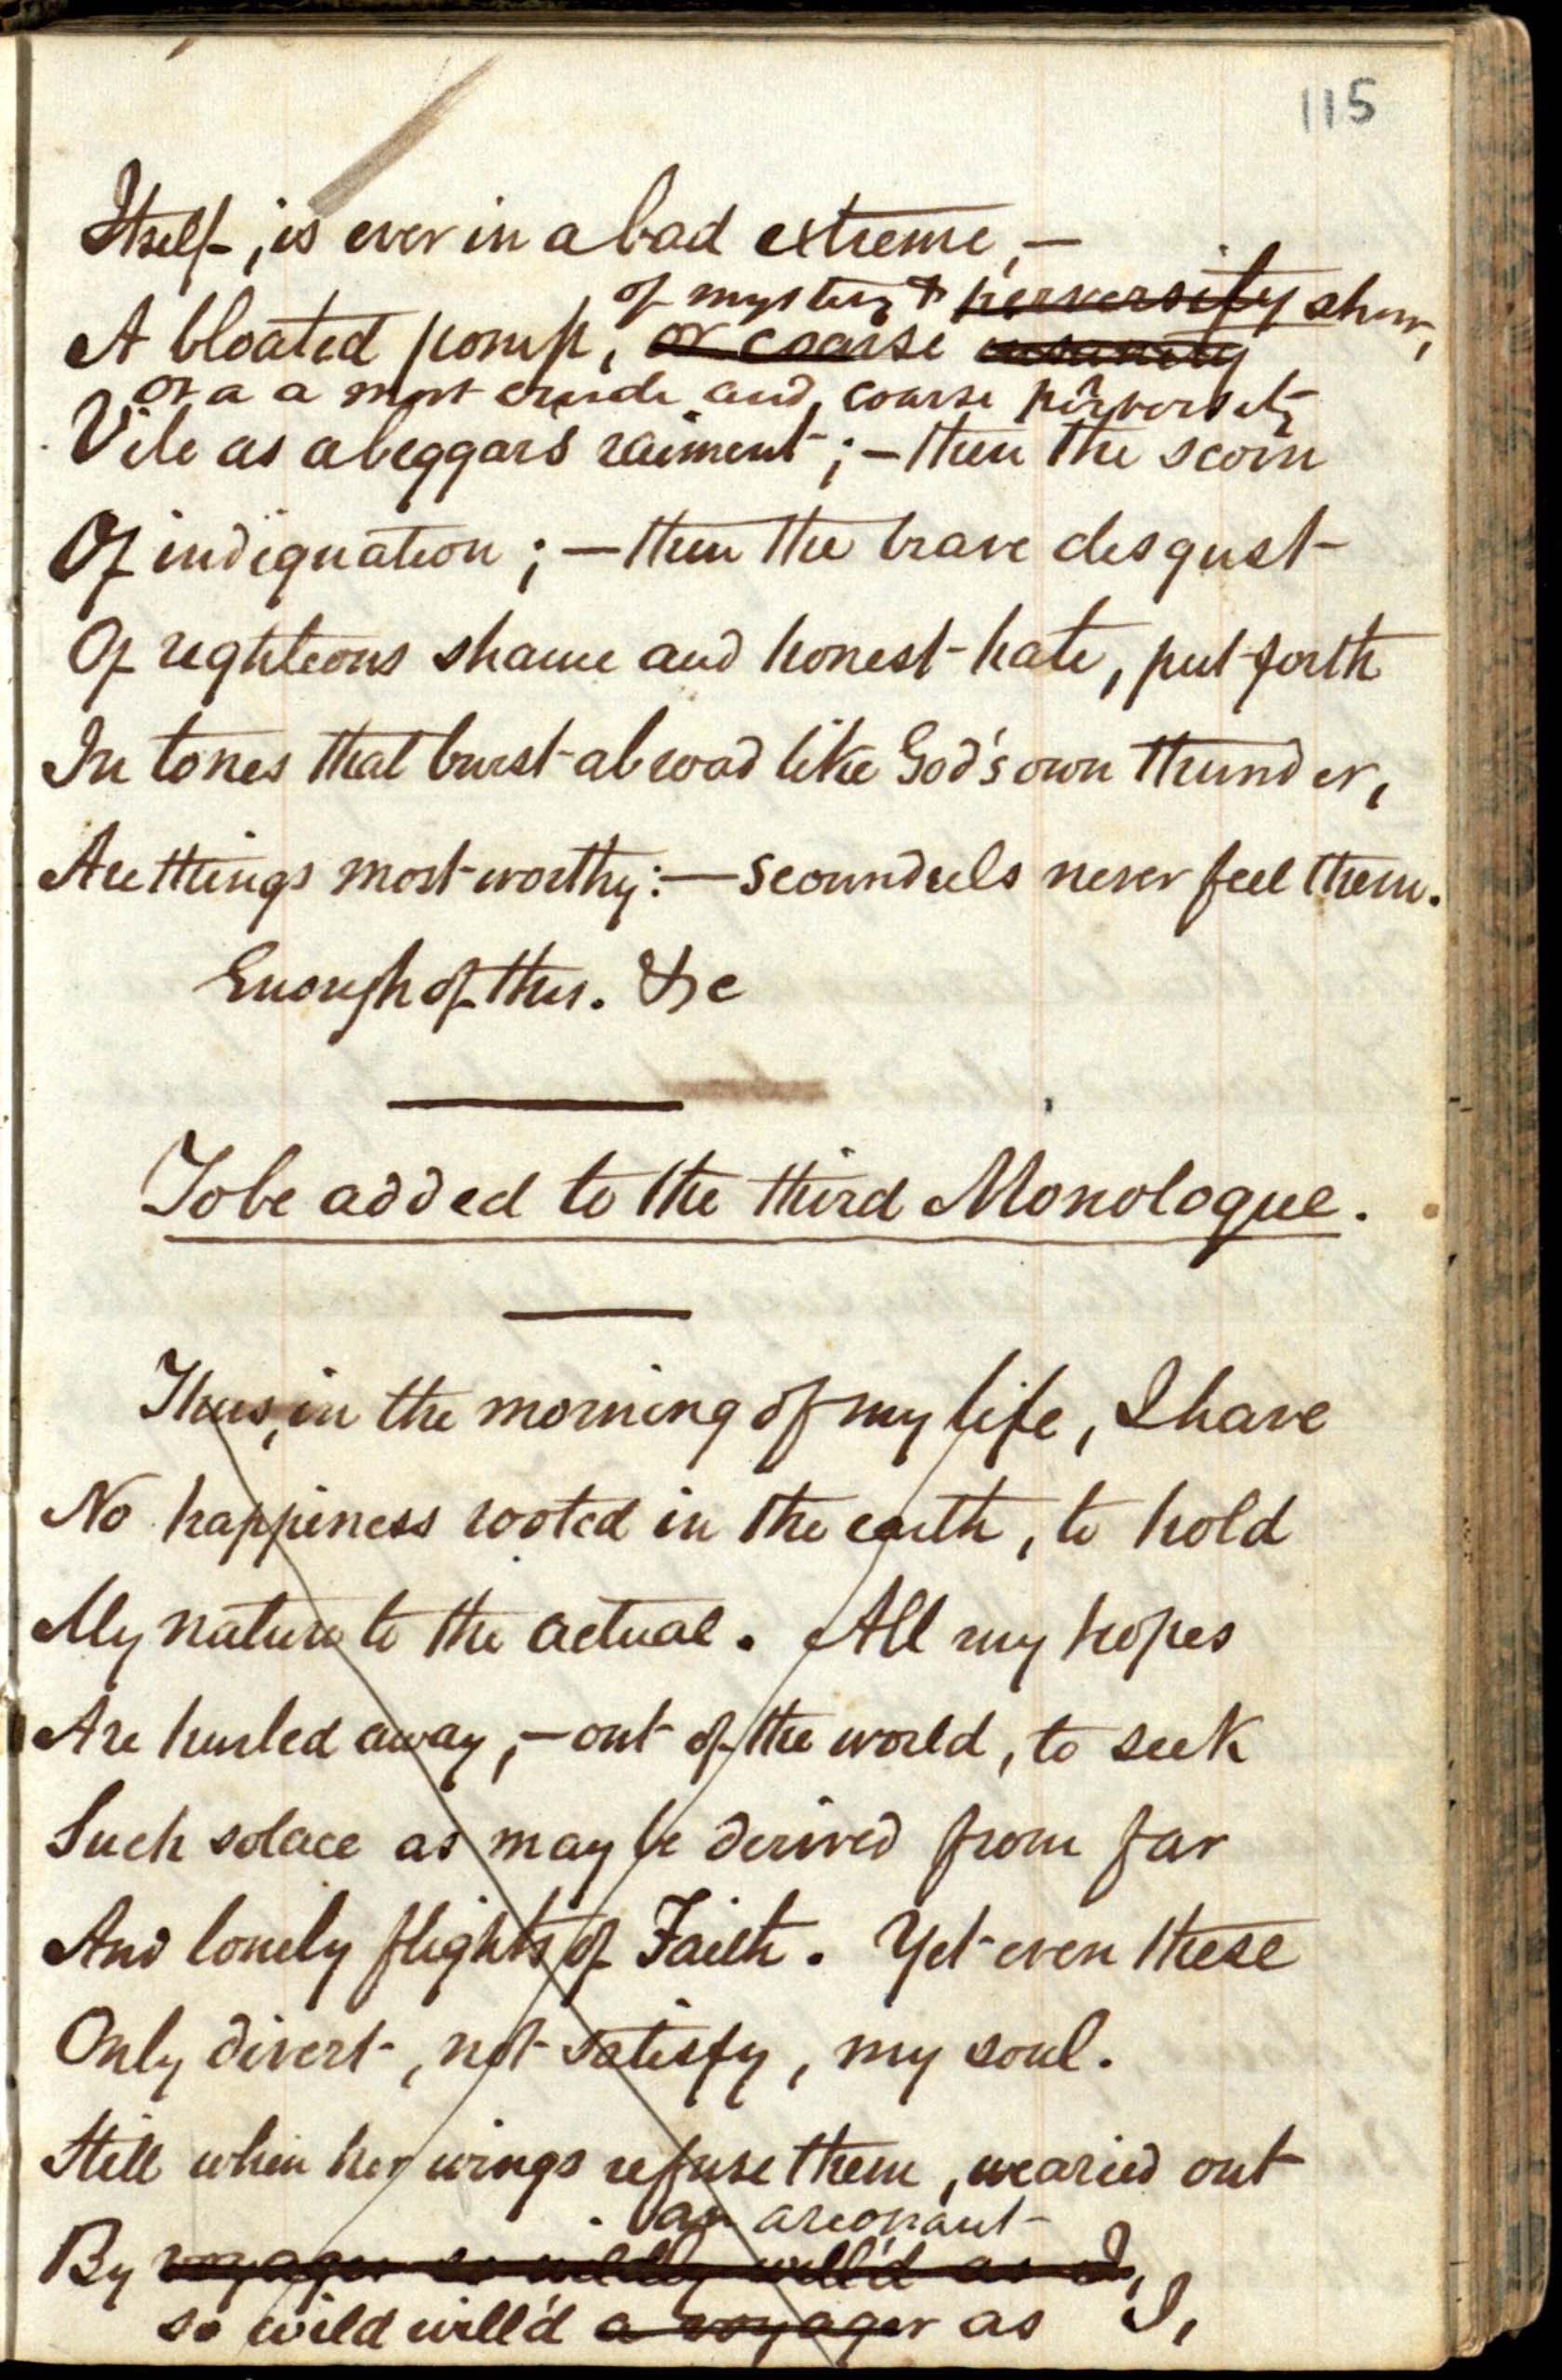 115
Itself, is ever in a bad extreme,—
of mystery & perversity show,
A bloated pomp, or coarse insanity
Or a a most crude and coarse perversity
Vile as a beggar's raiment;—then the scorn
Of indignation;—then the brave disgust
Of righteous shame and honest hate, put forth
In tones that burst abroad like God's own thunder,
Are things most worthy:—scoundrels never feel them.
Enough of this. &c
To be added to the third Monologue.
Thus, in the morning of my life, I have
No happiness rooted in the earth, to hold
My nature to the actual. All my hopes
Are hurled away,—out of the world, to seek
Such solace as may be derived from far
And lonely flights of Faith. Yet even these
Only divert, not satisfy, my soul.
Still when her wings refuse them, wearied out
an areonaut
By voyager so wildly will'd as I,
so wild will'd a voyager as I,